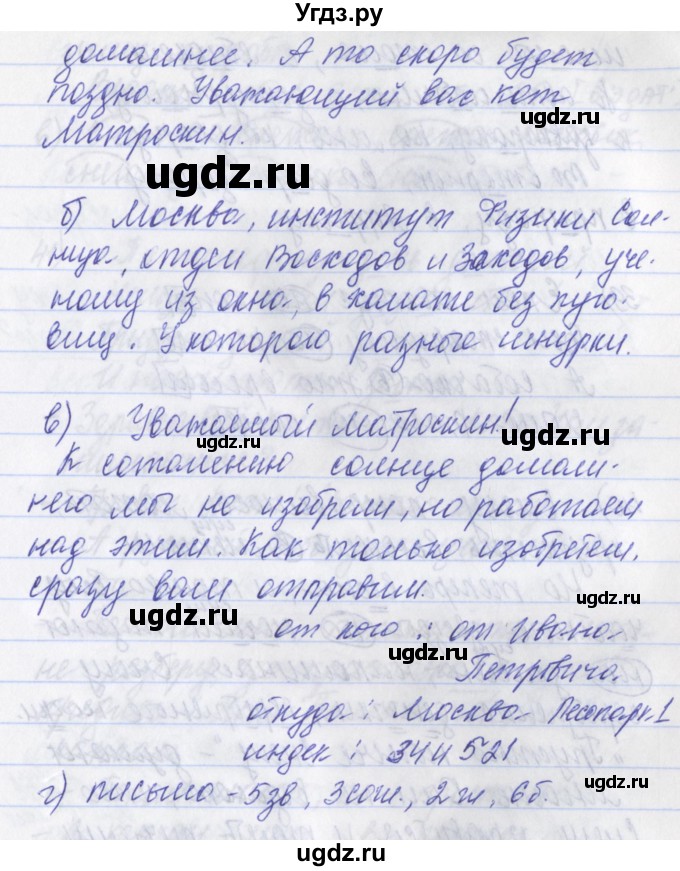 Угдз.ру
домашнее. А то скоро будет
поздно. Уважающий вас кот
ugdz.ru
Матроскин.
ugdz.ru
б) Москва, институт Физики Сол-
нца, отдел Восходов и Заходов, уче-
ugdz.ru
ному из окна, в халате без пуго-
виц. У которого разные шнурки.
в) Уважаемый Матроскин!
ugdz.ru
ugdz.ru
К сожалению солнце домаш-
него мы не изобрели, но работаем
над этим. Как только изобретем,
сразу вам отправим.
ugdz.ru
ugdz.ru
от кого: от Ивана
ugdz.ru
Петровича.
откуда: Москва Лесопарк-1
индек: 344521
г) письмо - 5зв, 3сог., 2гл, 6б.
ugdz.ru
ugdz.ru